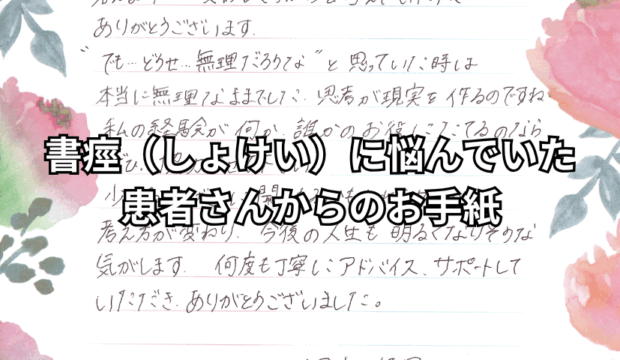 ありがとうございます.
"でも…どうせ…無理だろうな"と思っていた時は
本当に無理なままでした. 思考が現実を作るのですね
私の経験が何か、誰かのお役にたてるのなら
書痙（しょけい）に悩んでいた
患者さんからのお手紙
考え方が変わり、今後の人生も明るくなりそうな
気がします. 何度も丁寧にアドバイス、サポートして
いただき、ありがとうございました。